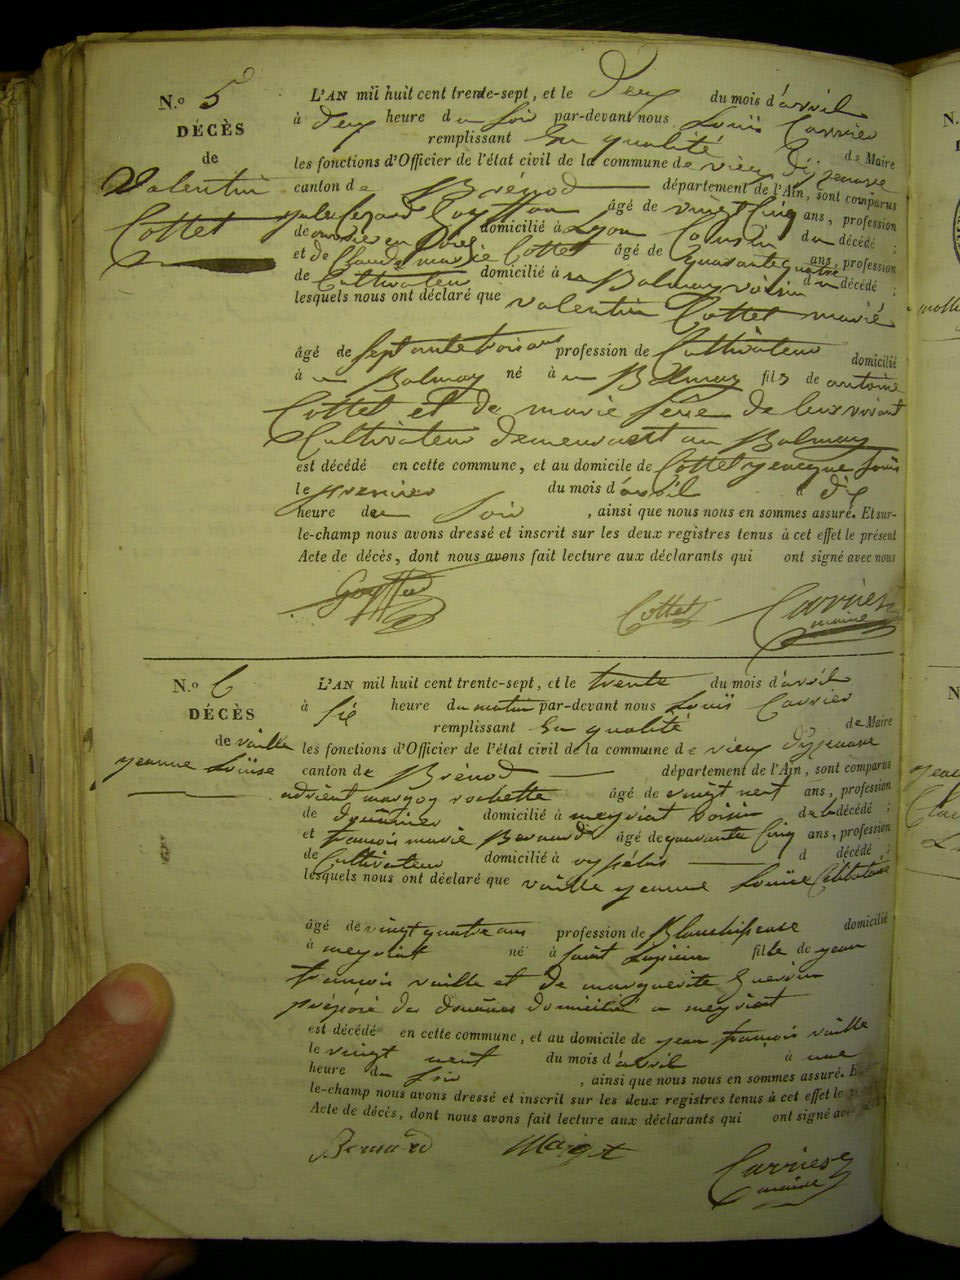 N.o 5
DÉCÈS
de
Valentin
Cottet
L'AN mil huit cent trente-sept, et le deux du mois d'avril
à deux heure du soir par-devant nous Louis Carrier
remplissant En qualité de Maire
les fonctions d'Officier de l'état civil de la commune de vieux d'yzenave
canton de Brénod département de l'Ain, sont comparus
âgé de vingt Cinq ans, profession
de ouvrier en domicilié à Lyon Cousin du décédé ;
et de Claude marie Cottet âgé de quarante quatre ans, profession
de Cultivateur domicilié à Balmay voisin du décédé ;
lesquels nous ont déclaré que valentin Cottet marié
âgé de septante trois ans profession de Cultivateur domicilié
à Balmay né à Balmay fils de antoine
Cottet et de marie de leur vivant
Cultivateur demeurant au Balmay
est décédé en cette commune, et au domicile de Cottet
le premier du mois d'avril à dix
heure du soir , ainsi que nous nous en sommes assuré. Et sur-
le-champ nous avons dressé et inscrit sur les deux registres tenus à cet effet le présent
Acte de décès, dont nous avons fait lecture aux déclarants qui ont signé avec nous
Cottet Carrier
maire
N.o 6
DÉCÈS
de vaille
yeanne Louise
L'AN mil huit cent trente-sept, et le trente du mois d'avril
à six heure du matin par-devant nous Louis Carrier
remplissant En qualité de Maire
les fonctions d'Officier de l'état civil de la commune de vieux d'yzenave
canton de Brénod département de l'Ain, sont comparus
rochette âgé de vingt neuf ans, profession
de douanier domicilié à meyriat voisin de la décédé ;
et françois marie âgé de quarante Cinq ans, profession
de Cultivateur domicilié à d décédé ;
lesquels nous ont déclaré que vaille yeanne Louise Célibataire
âgé de vingt quatre ans profession de Blanchisseuse domicilié
à meyriat né à Saint fille de yean
françois vaille et de marguerite Guerrin
préposé des douanes domicilié a meyriat
est décédé en cette commune, et au domicile de yean françois vaille
le vingt neuf du mois d'avril à une
heure du soir , ainsi que nous nous en sommes assuré. E
le-champ nous avons dressé et inscrit sur les deux registres tenus à cet effet le
Acte de décès, dont nous avons fait lecture aux déclarants qui ont signé
Carrier
maire